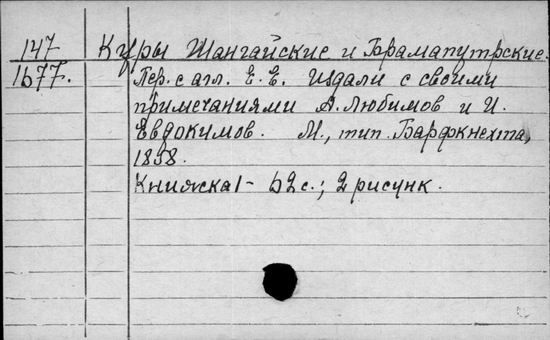 147 Куры Шангайские и Брамапутрские.
1677. Пер. с агл. Е. Е. Издали с своими
примечаниями А. Любимов и И.
Евдокимов. М., тип. Барфкнехта,
1858.
Книжка 1 - 62 с.; 2 рисунк.